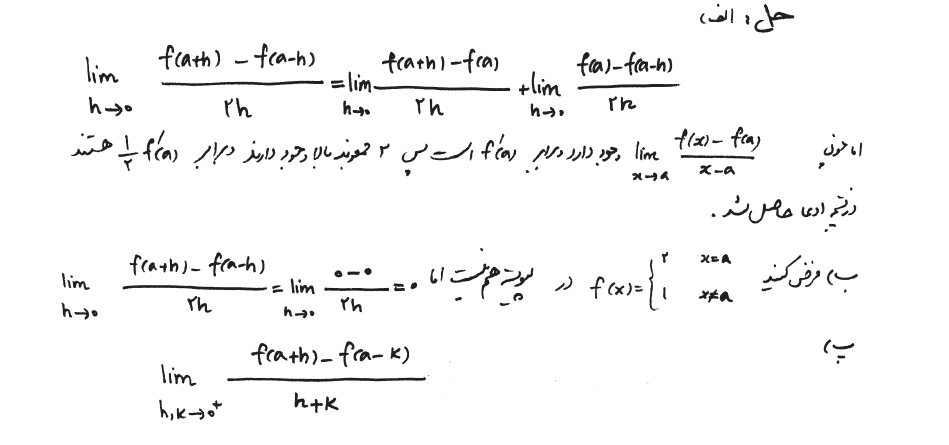 حل: الف)
lim_{h→0} (f(a+h) - f(a-h))/(۲h) = lim_{h→0} (f(a+h) - f(a))/(۲h) + lim_{h→0} (f(a) - f(a-h))/(۲h)
اما چون lim_{x→a} (f(x) - f(a))/(x-a) وجود دارد و برابر f'(a) است پس ۲ حد بالا وجود دارند و برابر ½ f'(a) هستند
در نتیجه ادعا حاصل شد.
ب) فرض کنید f(x) = { ۲ x=a ، ۱ x≠a در پیوسته هم نیست اما lim_{h→0} (f(a+h) - f(a-h))/(۲h) = lim_{h→0} (۰-۰)/(۲h) = ۰
پ)
lim_{h,k→0⁺} (f(a+h) - f(a-k))/(h+k)